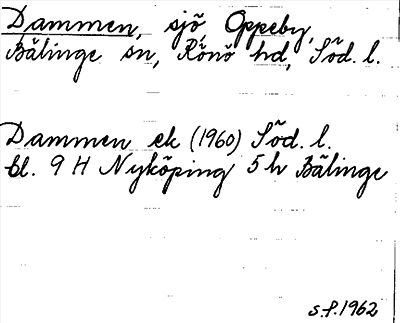 Dammen, sjö, Oppeby,
Bälinge sn, Rönö hd, Söd. l.
Dammen ek (1960) Söd. l.
bl. 9 H Nyköping 5 h Bälinge
s.f. 1962